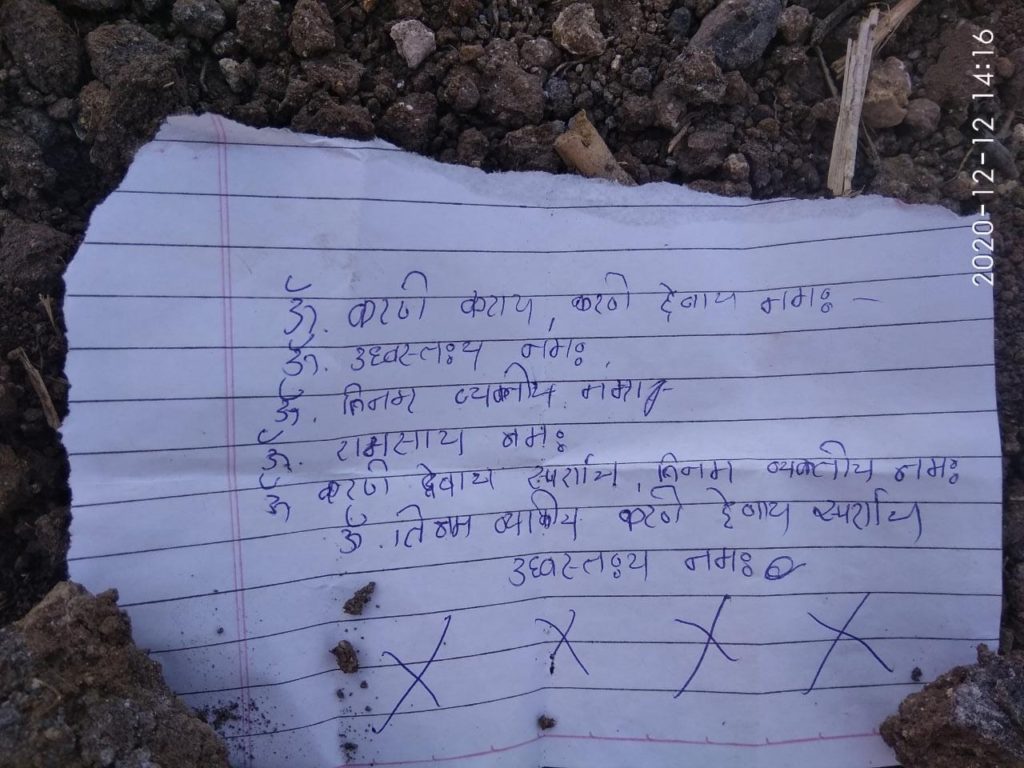 ॐ. करणी कराय, करणी देवाय नमः –
ॐ. उध्वस्तःय नमः,
ॐ. तिनम व्यक्तीय नमः
ॐ. रामसाय नमः
ॐ करणी देवाय स्पर्शाय, तिनम व्यक्तीय नमः
ॐ. तिनम करणी देवाय स्पर्शाय
उध्वस्तःय नमः
X X X X
2020-12-12 14:16